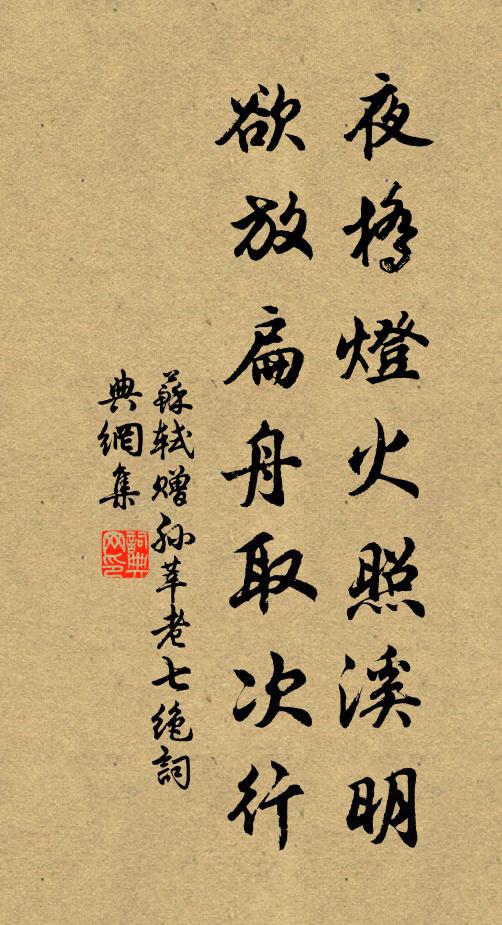 夜橋燈火照溪明
欲放扁舟取次行
蘇軾贈孙莘老七絶詞
典網集
詞典网印